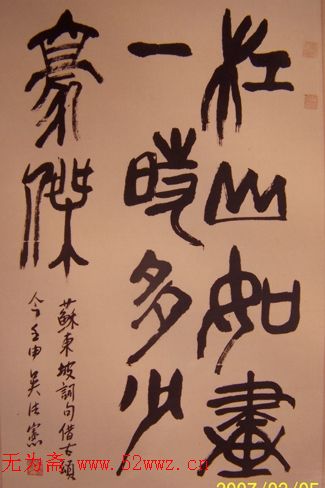 江山如畫
一時多少
豪傑
蘇東坡詞句借古頌
今壬申吳法憲
无为斋:www.52wwz.cn